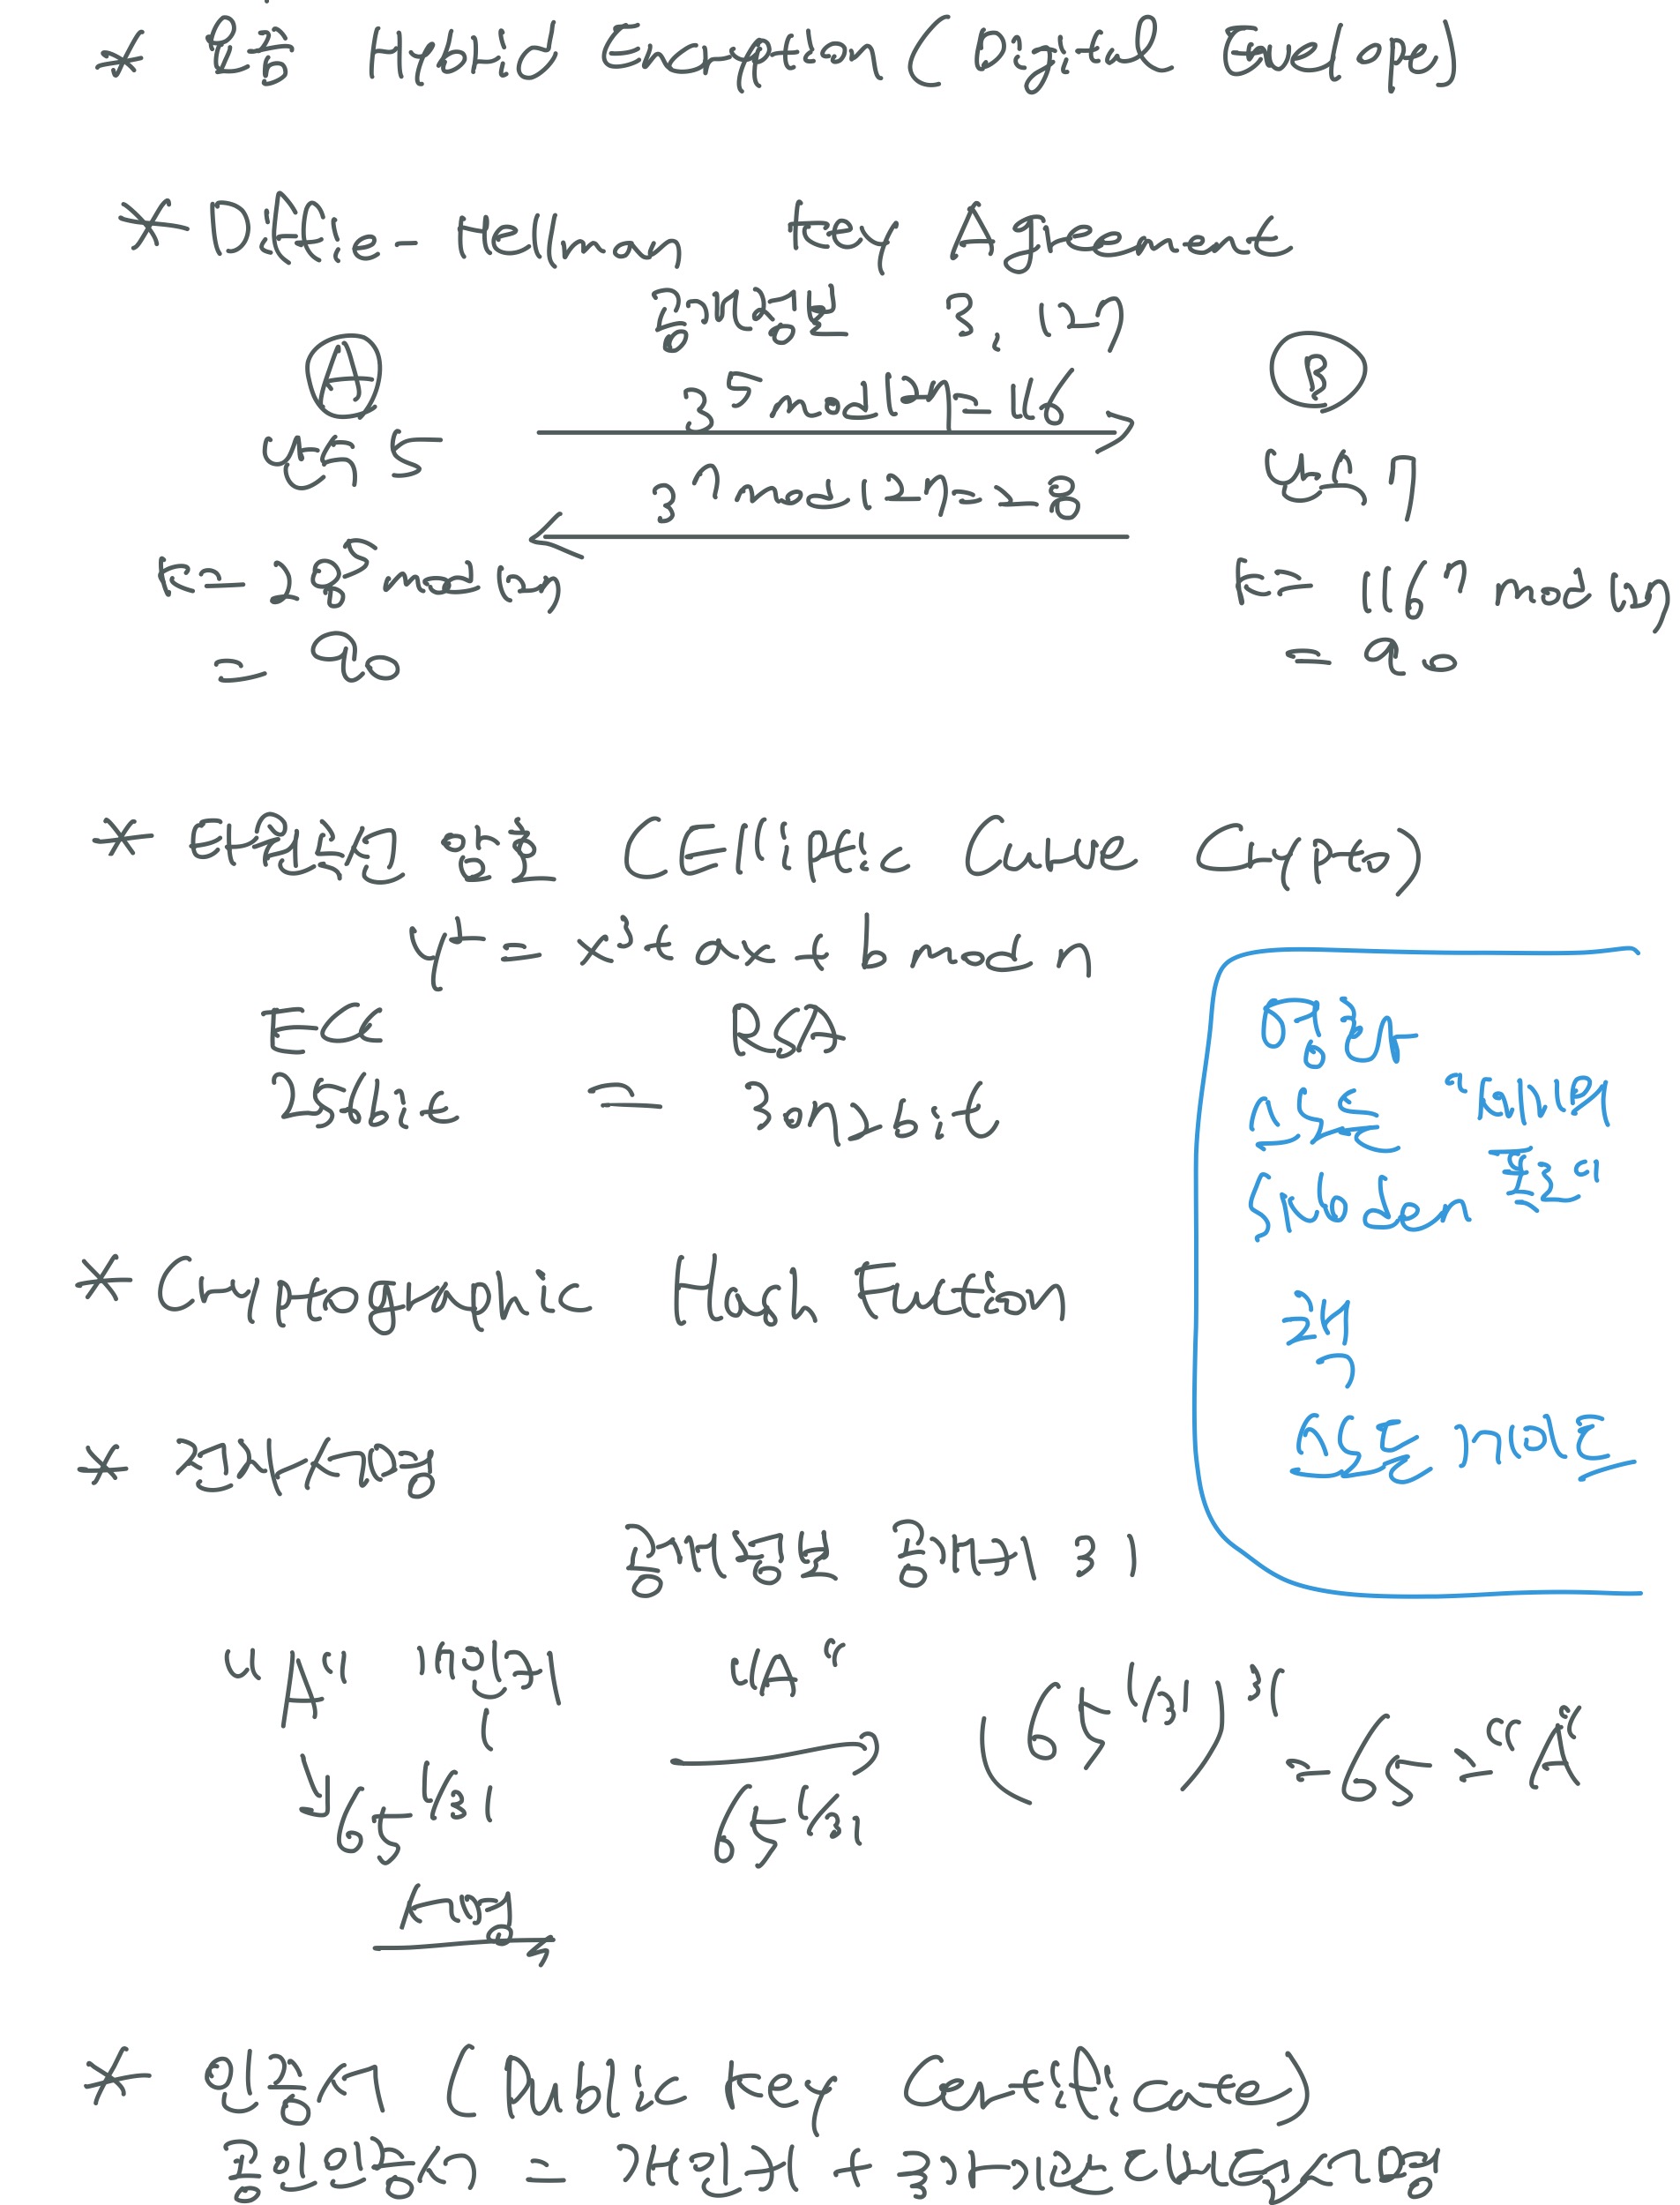 * 혼용 Hybrid Encryption (Digital Envelope)
* Diffie-Hellman Key Agreement
공개정보 3, 127
A
B
비밀 5
3^5 mod 127 = 116
비밀 7
3^7 mod 127 = 28
K = 28^5 mod 127
= 90
K = 116^7 mod 127
= 90
* 타원곡선 암호 (Elliptic Curve Crypto)
y² = x³ + ax + b mod n
ECC
RSA
256bit = 3072bit
* Cryptographic Hash Function
* 전자서명
공개정보 공개키 31
"A" 개인키
65^1/31
서명
"A"
65^1/31
(65^1/31)^31 = 65 = "A"
* 인증서 (Public Key Certificate)
공인인증서 = 개인키 +